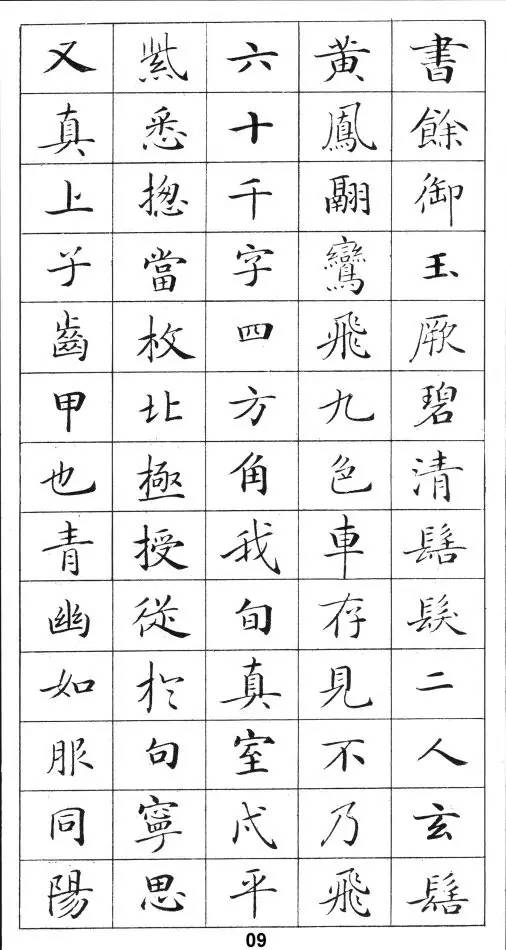 書餘御玉厥碧清髮二人玄
黃鳳翮鸞飛九色車存見不乃飛
六十千字四方角我旬真室戌平
紫悉揔當枚北極授從於句寧思
又真上子齒甲也青幽如服同陽
09